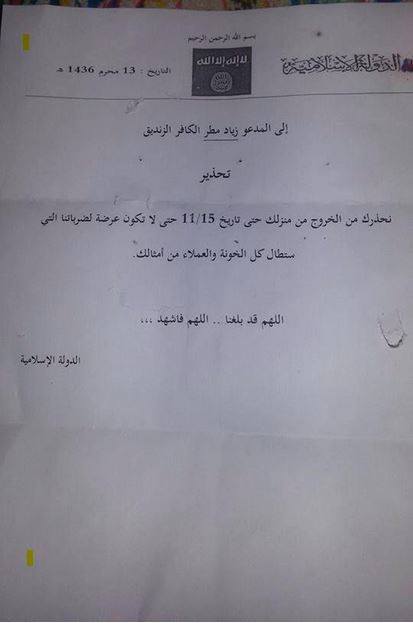 بسم الله الرحمن الرحيم
الدولة الإسلامية
لا إله إلا الله
التاريخ : 13 محرم 1436 هـ
إلى المدعو زياد مطر الكافر الزنديق
تحذير
نحذرك من الخروج من منزلك حتى تاريخ 11/15 حتى لا تكون عرضة لضرباتنا التي
ستطال كل الخونة والعملاء من أمثالك.
اللهم قد بلغنا .. اللهم فاشهد ،،،
الدولة الإسلامية